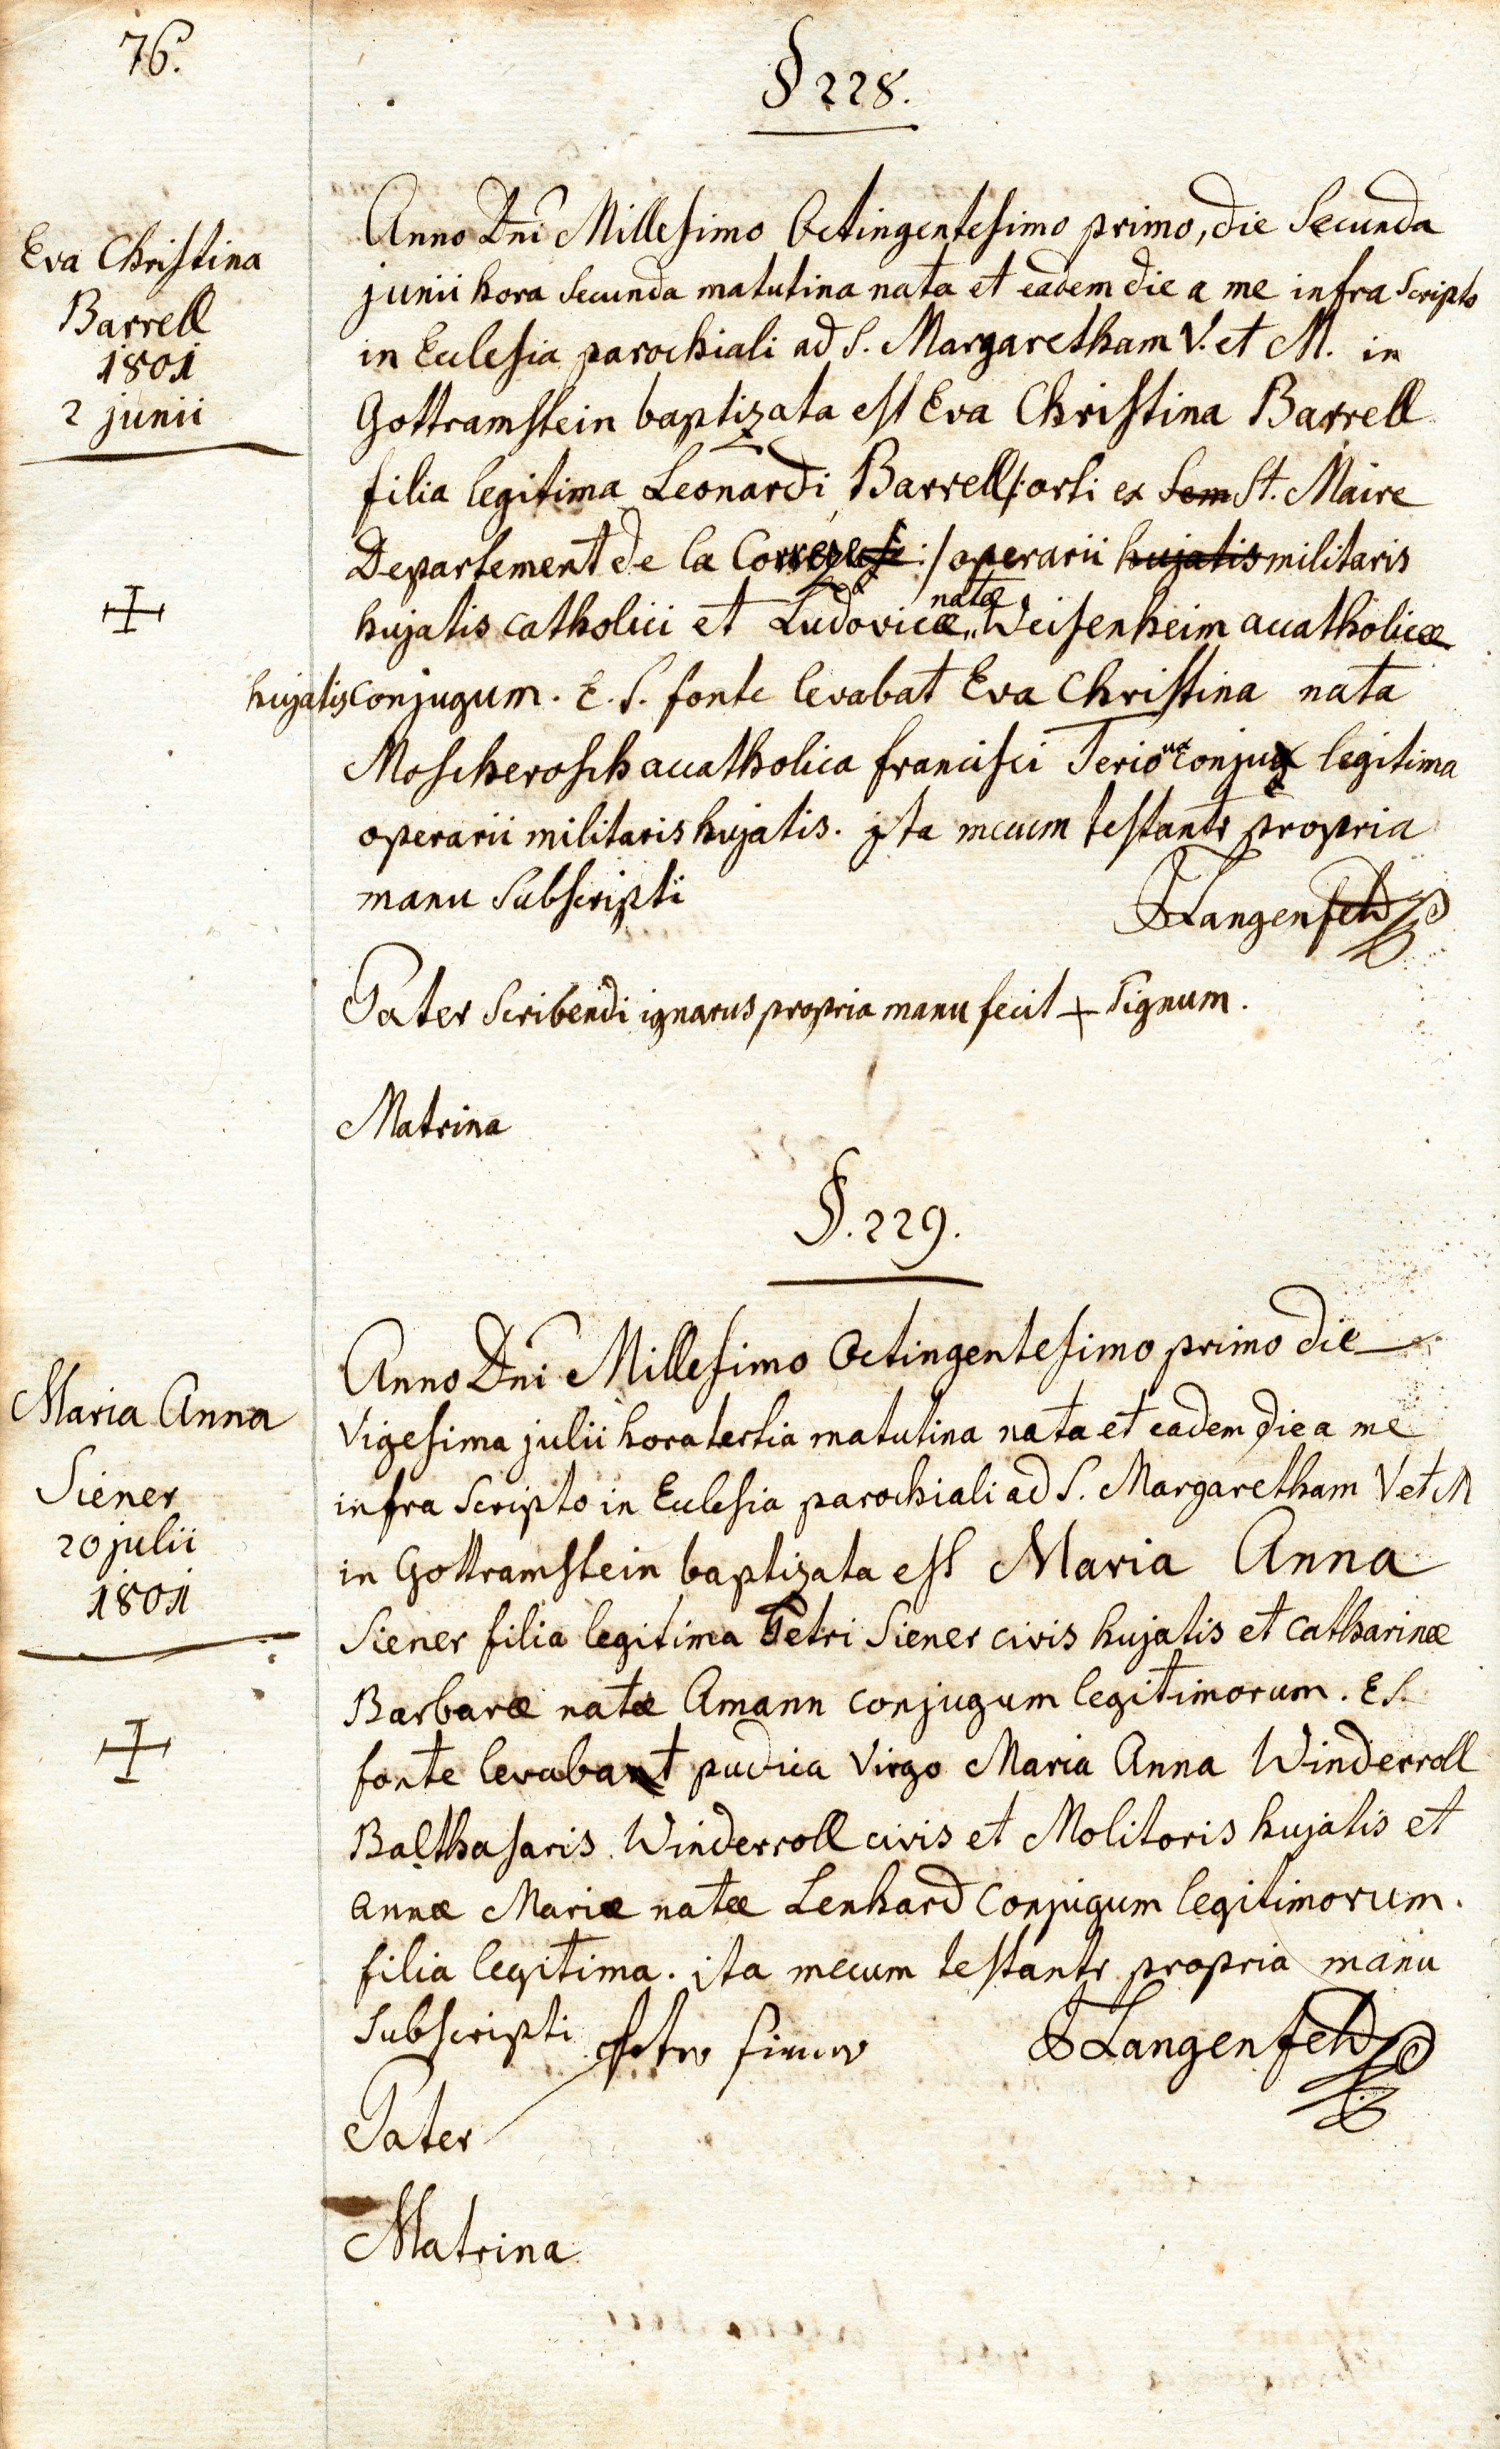 76.
§ 228.
Eva Christina
Barrell
1801
2 junii
Anno Dni Millesimo Octingentesimo primo, die Secunda
junii hora Secunda matutina nata et eadem die a me infra Scripto
in Ecclesia parochiali ad S. Margaretham V. et M. in
Gottramstein baptizata est Eva Christina Barrell
filia legitima Leonardi Barrell /: orti ex Sem St. Maire
Departement de la :/ operarii hujatis militaris
natæ
hujatis catholici et Ludovicæ „ Weisenheim acatholicæ
hujatis conjugum. E. S. fonte levabat Eva Christina nata
Moscherosch acatholica francisci Terio conjux legitima
operarii militaris hujatis. ita mecum testantr propria
manu Subscripti
Langenfeld
Pater Scribendi ignarus propria manu fecit + Signum.
Matrina
§. 229.
Maria Anna
Siener
20 julii
1801
Anno Dni Millesimo Octingentesimo primo die
Vigesima julii hora tertia matutina nata et eadem die a me
infra Scripto in Ecclesia parochiali ad S. Margaretham V et M
in Gottramstein baptizata est Maria Anna
Siener filia legitima Petri Siener civis hujatis et Catharinæ
Barbaræ natæ Amann conjugum legitimorum. E S.
fonte levabat pudica Virgo Maria Anna Winderroll
Balthasaris Winderroll civis et Molitoris hujatis et
annæ Mariæ natæ Lenhard Conjugum legitimorum.
filia legitima. ita mecum testantr propria manu
Subscripti
Langenfeld
Pater
Matrina